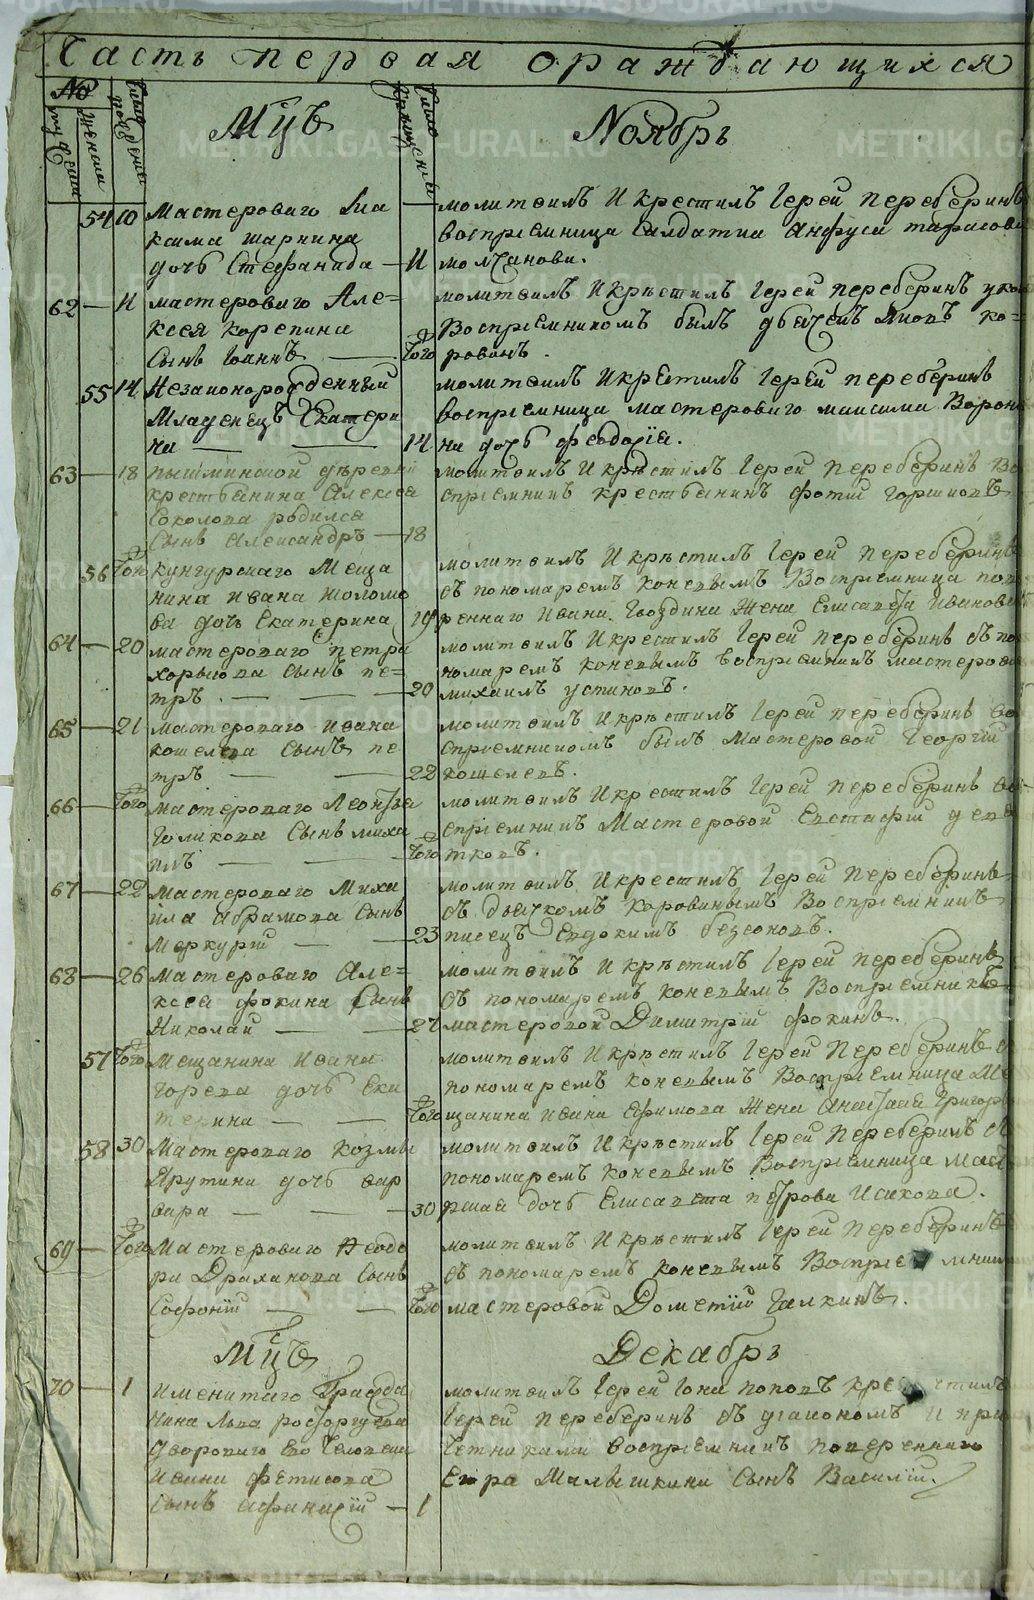 Часть первая о раждающихся
№
Мцъ Ноябрь
54 10 Мастероваго
дочь Стефанида — 11
молитвилъ и крестилъ Іерей Переберинъ
воспріемница салдатка Анфуса Тарасова
молчанова.
62 — 11 мастероваго Але=
ксея корепина
сынъ Іоаннъ — того
молитвилъ и крѣстилъ Іерей Переберинъ
Воспріемникомъ былъ
ровинъ.
55 14 Незаконорожденный
Младенецъ Екатери
на — 14
молитвилъ и крѣстилъ Іерей Переберинъ
воспріемница мастероваго максима Ворони
на дочь феодосія.
63 — 18 пышминской деревни
крестьянина Алексея
Соколова родился
Сынъ Александръ — 18
молитвилъ и крѣстилъ Іерей Переберинъ Во
спріемникъ крестьянинъ фотій горшковъ
56 того кунгурскаго Меща
нина ивана шоломо
ва дочь Екатерина 19
молитвилъ и крѣстилъ Іерей Переберинъ
съ пономаремъ коневымъ Воспріемница пов
реннаго Ивана Гвоздина Жена Елисавета Иванова
64 — 20 мастероваго петра
хорькова сынъ пе=
тръ — 20
молитвилъ и крестилъ Іерей Переберинъ съ по
номаремъ коневымъ воспріемникъ мастерово
михаилъ устиновъ.
65 — 21 мастероваго ивана
кошелева сынъ пе
тръ — 22
молитвилъ и крѣстилъ Іерей Переберинъ во
спріемникомъ былъ Мастеровой Георгій
кошелевъ.
66 — того мастероваго Леонтья
Голикова Сынъ миха
илъ — того
молитвилъ и крестилъ Іерей Переберинъ во
спріемникъ Мастеровой Евстафій дева
тковъ.
67 — 22 мастероваго Миха
ила абрамова Сынъ
Меркурій — 23
молитвилъ и крестилъ Іерей Переберинъ
съ дьячкомъ коровинымъ Воспріемникъ
писецъ Евдокимъ безсоновъ.
68 — 26 мастероваго Але=
ксея фокина Сынъ
Николай — 27
молитвилъ и крѣстилъ Іерей Переберинъ
съ пономаремъ коневымъ Воспріемникъ
мастеровой Димитрій фокинъ.
57 того мещанина ивана
горева дочь Ека
терина — того
молитвилъ и крѣстилъ Іерей Переберинъ с
пономаремъ коневымъ Воспріемница Ме
щанина ивана Ефимова Жена Анастасія Григорь
58 30 Мастероваго козмы
Ярутина дочь вар
вара — 30
молитвилъ и крѣстилъ Іерей Переберинъ с
пономаремъ коневымъ Воспріемница мас
ршая дочь Елисавета петрова Исакова.
69 — того Мастероваго Феодо
ра Драханова Сынъ
Софоній — того
молитвилъ и крѣстилъ Іерей Переберинъ
съ пономаремъ коневымъ Воспріемник
мастеровой Дометій Галкинъ.
Мцъ Декабрь
70 — 1 именитаго Гражда
нина Льва росторгуева
двороваго его человека
ивана фетисова
сынъ Афанасій — 1
молитвилъ Іерей Іона поповъ крестилъ
Іерей Переберинъ съ діакономъ и при
четниками воспріемникъ повереннаго
Егора Малышкина Сынъ Василій.
METRIKI.GASO-URAL.RU